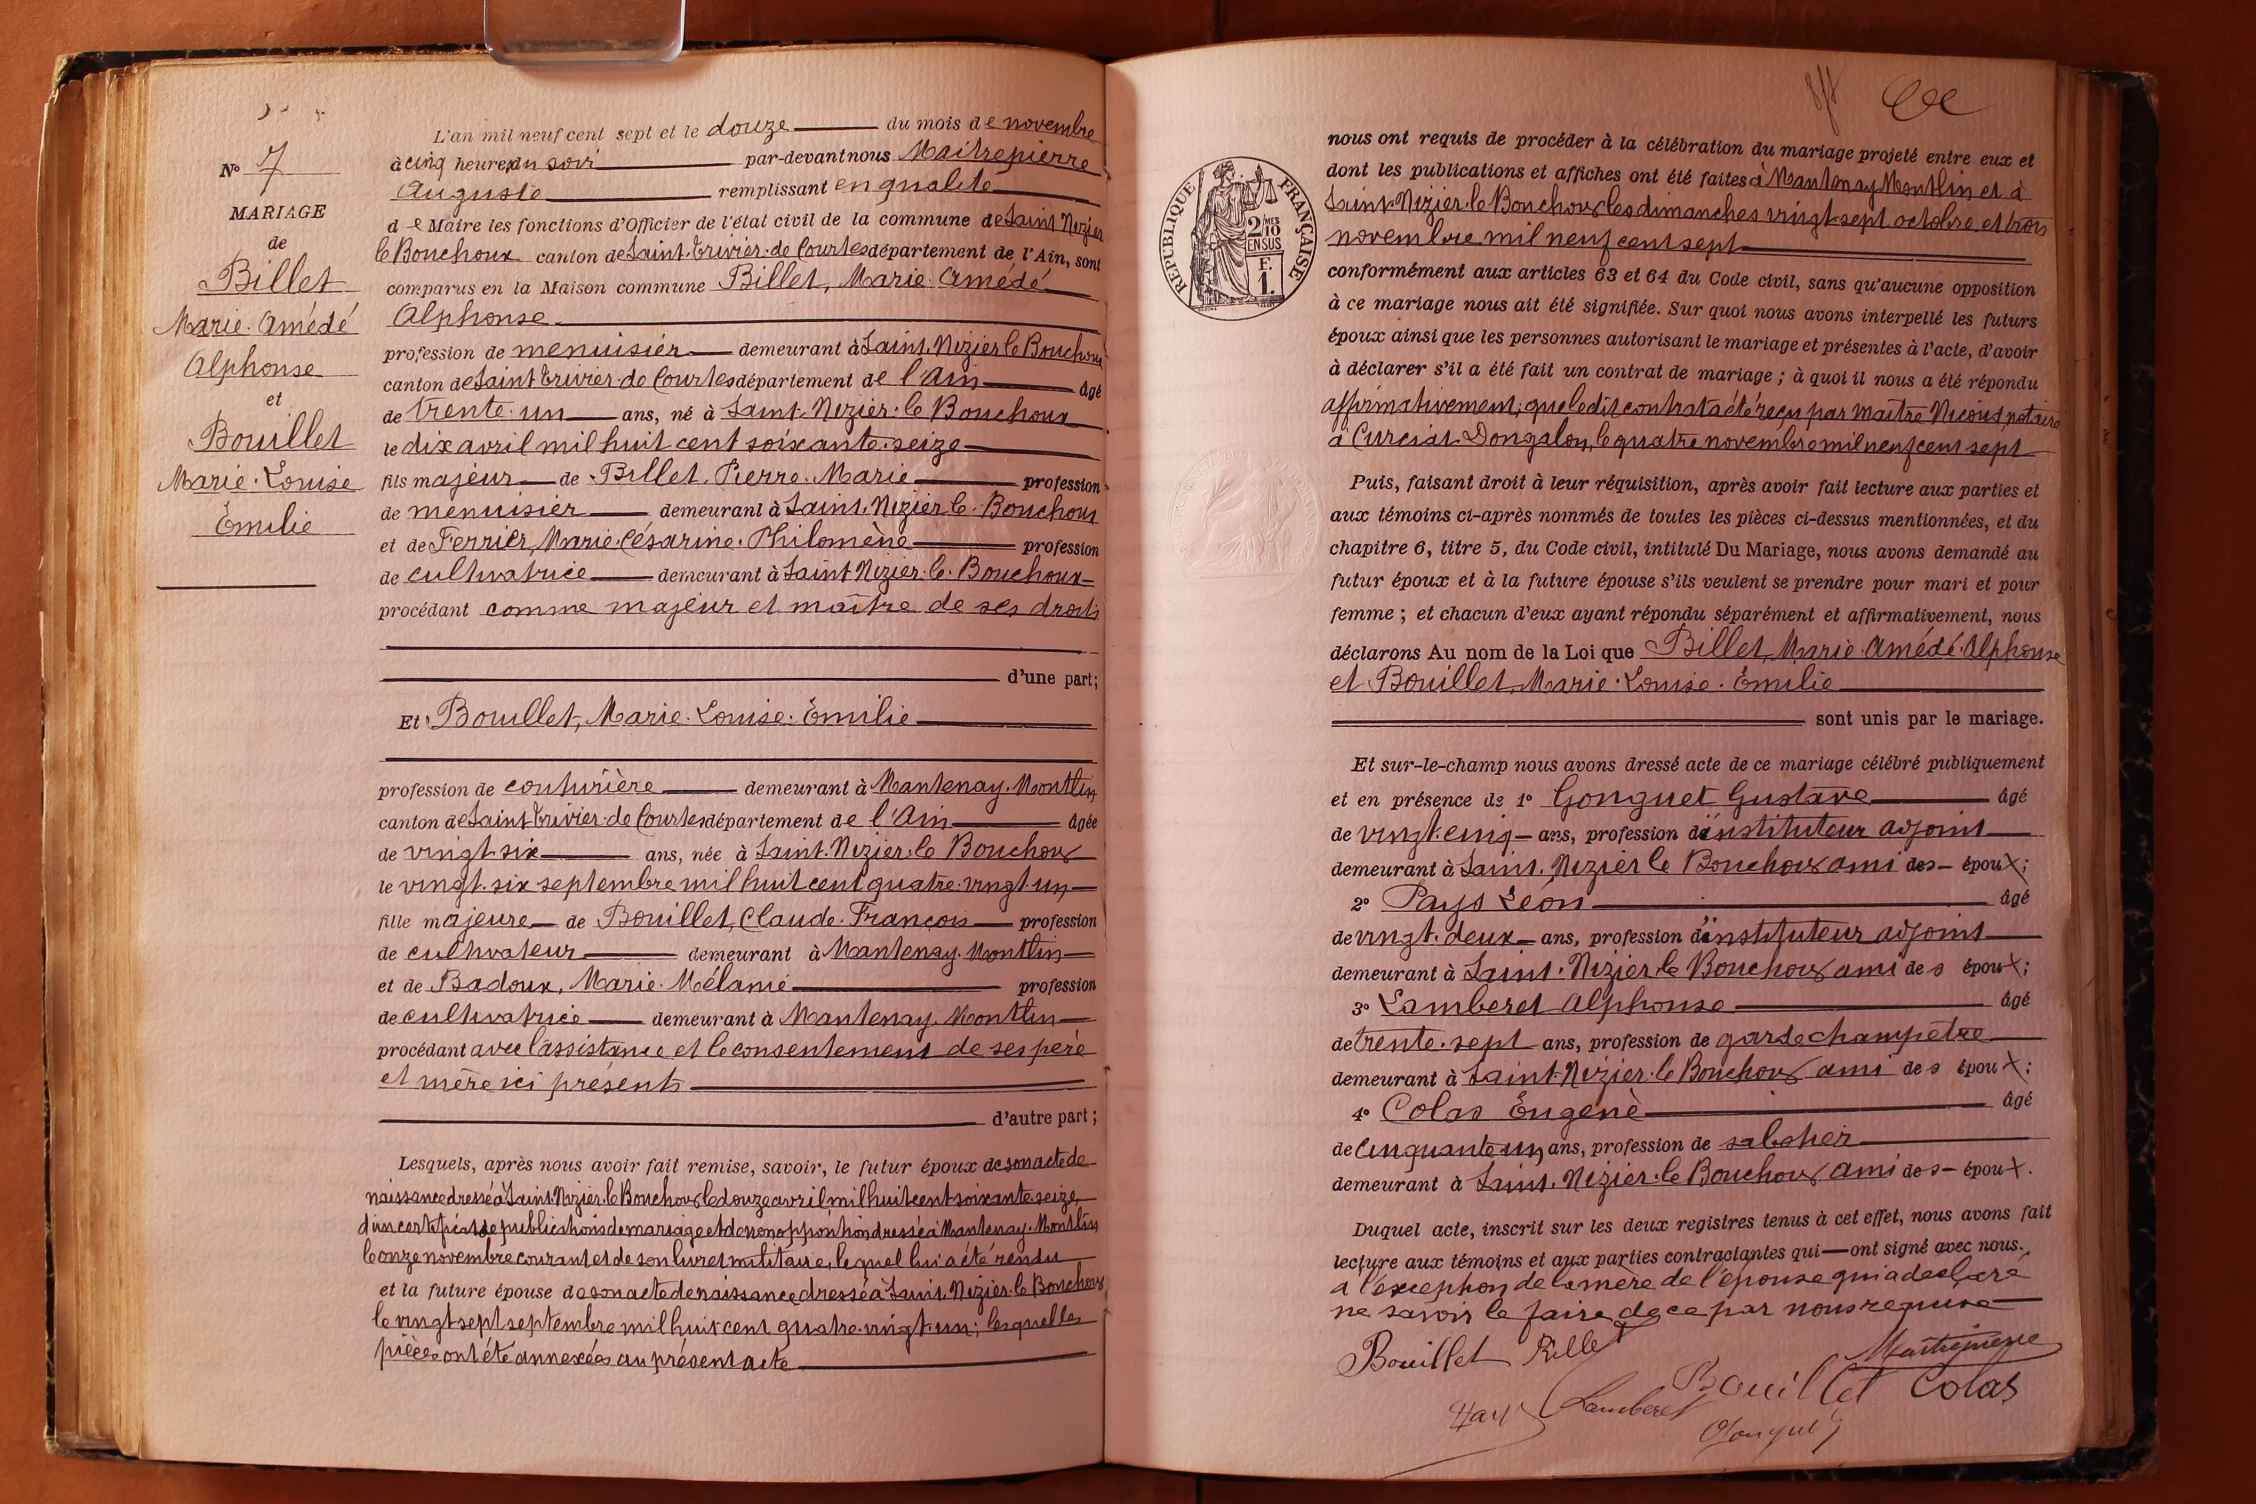 Nº 7
MARIAGE
de
Billet
Marie. Amédé
Alphonse
et
Bouillet
Marie. Louise
Émilie
L'an mil neuf cent sept et le douze du mois de novembre
à cinq heures du soir par-devant nous Maitrepierre
Auguste remplissant en qualité
de Maire les fonctions d'Officier de l'état civil de la commune de Saint Nizier
le Bouchoux canton de Saint. Trivier. de Courtes département de l'Ain, sont
comparus en la Maison commune Billet, Marie. Amédé
Alphonse
profession de menuisier demeurant à Saint. Nizier le Bouchoux
canton de Saint Trivier. de Courtes département de l'Ain âgé
de trente. un ans, né à Saint. Nizier. le Bouchoux
le dix avril mil huit cent soixante. seize
fils majeur de Billet, Pierre. Marie profession
de menuisier demeurant à Saint. Nizier le. Bouchoux
et de Ferrier, Marie. Césarine. Philomène profession
de cultivatrice demeurant à Saint Nizier. le. Bouchoux
procédant comme majeur et maître de ses droits
d'une part;
Et Bouillet, Marie. Louise. Émilie
profession de couturière demeurant à Mantenay. Montlin
canton de Saint Trivier. de Courtes département de l'Ain âgée
de vingt six ans, née à Saint. Nizier. le Bouchoux
le vingt. six septembre mil huit cent quatre. vingt un
fille majeure de Bouillet, Claude. François profession
de cultivateur demeurant à Mantenay. Montlin
et de Badoux, Marie. Mélanie profession
de cultivatrice demeurant à Mantenay. Montlin
procédant avec l'assistance et le consentement de ses père
et mère ici présents
d'autre part;
Lesquels, après nous avoir fait remise, savoir, le futur époux de son acte de
naissance dressé à Saint. Nizier. le Bouchoux le douze avril mil huit cent soixante seize,
d'un certificat de publications de mariage et de non opposition dressé à Mantenay. Montlin
le onze novembre courant et de son livret militaire, lequel lui a été rendu
et la future épouse de son acte de naissance dressé à Saint. Nizier. le Bouchoux
le vingt sept septembre mil huit cent quatre. vingt. un; lesquelles
pièces ont été annexées au présent acte
RÉPUBLIQUE FRANÇAISE
2/10 MES
EN SUS
F.
1.
nous ont requis de procéder à la célébration du mariage projeté entre eux et
dont les publications et affiches ont été faites à Mantenay Montlin et à
Saint. Nizier. le Bouchoux les dimanches vingt. sept octobre et trois
novembre mil neuf cent sept
conformément aux articles 63 et 64 du Code civil, sans qu'aucune opposition
à ce mariage nous ait été signifiée. Sur quoi nous avons interpellé les futurs
époux ainsi que les personnes autorisant le mariage et présentes à l'acte, d'avoir
à déclarer s'il a été fait un contrat de mariage; à quoi il nous a été répondu
affirmativement; que ledit contrat a été reçu par maître notaire
à Curciat. Dongalon, le quatre novembre mil neuf cent sept
Puis, faisant droit à leur réquisition, après avoir fait lecture aux parties et
aux témoins ci-après nommés de toutes les pièces ci-dessus mentionnées, et du
chapitre 6, titre 5, du Code civil, intitulé Du Mariage, nous avons demandé au
futur époux et à la future épouse s'ils veulent se prendre pour mari et pour
femme; et chacun d'eux ayant répondu séparément et affirmativement, nous
déclarons Au nom de la Loi que Billet, Marie. Amédé. Alphonse
et Bouillet, Marie. Louise. Émilie
sont unis par le mariage.
Et sur-le-champ nous avons dressé acte de ce mariage célébré publiquement
et en présence de 1º Gonguet Gustave âgé
de vingt. cinq ans, profession d'instituteur adjoint
demeurant à Saint. Nizier le Bouchoux ami des époux;
2º Pays Léon âgé
de vingt. deux ans, profession d'instituteur adjoint
demeurant à Saint. Nizier. le Bouchoux ami des époux;
3º Lamberet Alphonse âgé
de trente. sept ans, profession de garde champêtre
demeurant à Saint. Nizier. le Bouchoux ami des époux;
4º Colas Eugène âgé
de cinquante un ans, profession de sabotier
demeurant à Saint. Nizier. le Bouchoux ami des époux.
Duquel acte, inscrit sur les deux registres tenus à cet effet, nous avons fait
lecture aux témoins et aux parties contractantes qui ont signé avec nous.
à l'exception de la mère de l'épouse qui a déclaré
ne savoir le faire de ce par nous requise
Bouillet Billet Maitrepierre
Bouillet Colas
Pays Lamberet
Gonguet